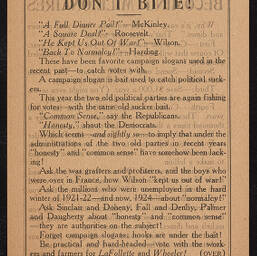 DON'T BITE!
"A Full Dinner Pail!" —McKinley.
"A Square Deal!" —Roosevelt.
"He Kept Us Out Of War!" —Wilson.
"Back To Normalcy!" —Harding.
These have been favorite campaign slogans used in the
recent past—to catch votes with.
A campaign slogan is bait used by catch political suck-
ers.
This year the two old political parties are again fishing
for votes—with the same old sucker bait.
"Common Sense," say the Republicans.
"Honesty," shout the Democrats.
Which seems—and sightly so—to imply that under the
administrations of the two old parties in recent years
"honesty" and "common sense" have somehow been lack-
ing!
Ask the war grafters and profiteers, and the boys who
went over in France, how Wilson "kept us out of war!"
Ask the millions who were unemployed in the hard
winter of 1921-22—and now, 1924—about "normalcy!"
Ask Sinclair and Doheny, Fall and Denby, Palmer
and Daugherty about "honesty" and "common sense"
they are authorities on the subject!
Forget campaign slogans; hooks are under the bait!
Be practical and hard-headed—vote with the work-
ers and farmers for LaFollette and Wheeler! (OVER)